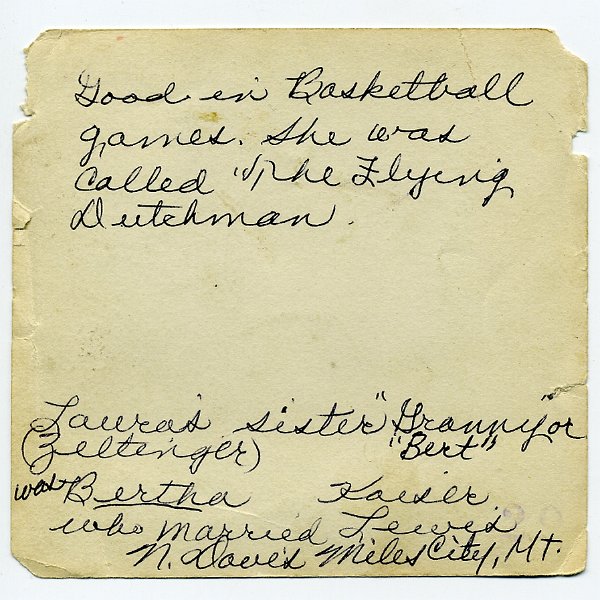 Good in Basketball
games. She was
called "The Flying
Dutchman.
Laura's sister "Granny" or
(Zeltinger) "Bert"
was Bertha Kaiser
who married Lewis
N. Davis Miles City, Mt.